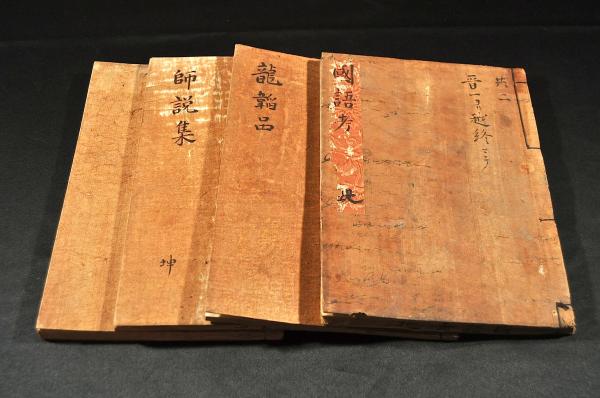 國語考
坤
共二
晋一ヨリ越終ニテ
龍韜品
師說集
坤